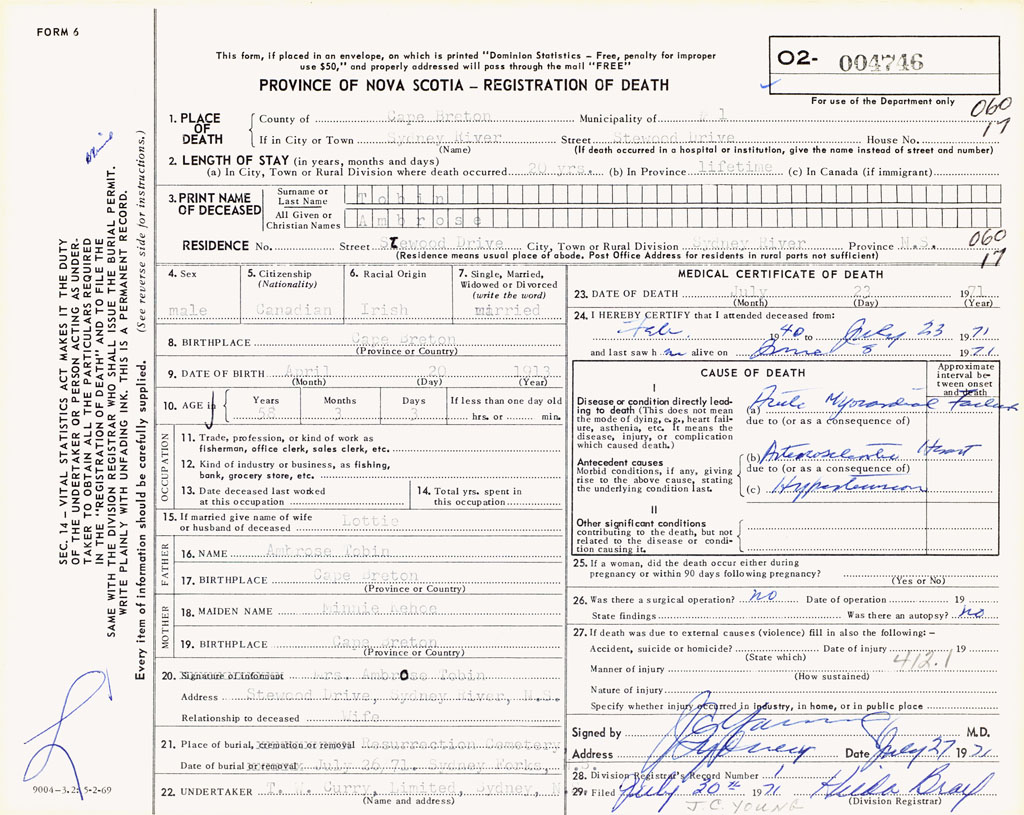 FORM 6
This form, if placed in an envelope, on which is printed "Dominion Statistics – Free, penalty for improper
use $50," and properly addressed will pass through the mail "FREE"
PROVINCE OF NOVA SCOTIA – REGISTRATION OF DEATH
O2- 004746
For use of the Department only
060
17
1. PLACE OF DEATH
County of Cape Breton Municipality of # 1
If in City or Town Sydney River Street Stewood Drive House No.
(Name) (If death occurred in a hospital or institution, give the name instead of street and number)
2. LENGTH OF STAY (in years, months and days)
(a) In City, Town or Rural Division where death occurred 20 yrs. (b) In Province lifetime (c) In Canada (if immigrant)
3. PRINT NAME OF DECEASED
Surname or Last Name Tobin
All Given or Christian Names Ambrose
RESIDENCE No. Street Stewood Drive City, Town or Rural Division Sydney River Province N.S.
060
17
(Residence means usual place of abode. Post Office Address for residents in rural parts not sufficient)
4. Sex
male
5. Citizenship (Nationality)
Canadian
6. Racial Origin
Irish
7. Single, Married, Widowed or Divorced (write the word)
married
8. BIRTHPLACE Cape Breton
(Province or Country)
9. DATE OF BIRTH April 20 1913
(Month) (Day) (Year)
10. AGE in
Years Months Days If less than one day old
58 3 3 hrs. or min.
OCCUPATION
11. Trade, profession, or kind of work as
fisherman, office clerk, sales clerk, etc.
12. Kind of industry or business, as fishing,
bank, grocery store, etc.
13. Date deceased last worked
at this occupation
14. Total yrs. spent in
this occupation
15. If married give name of wife
or husband of deceased Lottie
FATHER
16. NAME Ambrose Tobin
17. BIRTHPLACE Cape Breton
(Province or Country)
MOTHER
18. MAIDEN NAME Minnie Kehoe
19. BIRTHPLACE Cape Breton
(Province or Country)
20. Signature of informant Mrs. Ambrose Tobin
Address Stewood Drive, Sydney River, N.S.
Relationship to deceased Wife
21. Place of burial, cremation or removal Resurrection Cemetery
Date of burial or removal July 26, 71. Sydney Forks, N.S.
22. UNDERTAKER T. W. Curry, Limited, Sydney, N.S.
(Name and address)
MEDICAL CERTIFICATE OF DEATH
23. DATE OF DEATH July 23 1971
(Month) (Day) (Year)
24. I HEREBY CERTIFY that I attended deceased from:
Feb. 1940 to July 23 1971
and last saw him alive on June 8 1971
CAUSE OF DEATH
Approximate interval between onset and death
I
Disease or condition directly leading to death (This does not mean
the mode of dying, e.g., heart failure, asthenia, etc. It means the
disease, injury, or complication
which caused death.)
(a) Acute Myocardial Failure
due to (or as a consequence of)
Antecedent causes
Morbid conditions, if any, giving
rise to the above cause, stating
the underlying condition last.
(b) Arteriosclerotic Heart
due to (or as a consequence of)
(c) Hypertension
II
Other significant conditions
contributing to the death, but not
related to the disease or condition causing it.
25. If a woman, did the death occur either during
pregnancy or within 90 days following pregnancy?
(Yes or No)
26. Was there a surgical operation? no Date of operation 19
State findings Was there an autopsy? no
27. If death was due to external causes (violence) fill in also the following: –
Accident, suicide or homicide? Date of injury 19
(State which)
412.1
Manner of injury
(How sustained)
Nature of injury
Specify whether injury occurred in industry, in home, or in public place
Signed by J C Young M.D.
Address Sydney Date July 27 1971
28. Division Registrar's Record Number 1
29. Filed July 30th 1971 Hilda Bray
(Division Registrar)
J.C. YOUNG
SEC. 14 – VITAL STATISTICS ACT MAKES IT THE DUTY
OF THE UNDERTAKER OR PERSON ACTING AS UNDERTAKER
TO OBTAIN ALL THE PARTICULARS REQUIRED
IN THE "REGISTRATION OF DEATH" AND TO FILE THE
SAME WITH THE DIVISION REGISTRAR WHO SHALL ISSUE THE BURIAL PERMIT.
WRITE PLAINLY WITH UNFADING INK. THIS IS A PERMANENT RECORD.
Every item of information should be carefully supplied. (See reverse side for instructions.)
9004-3.2: 5-2-69